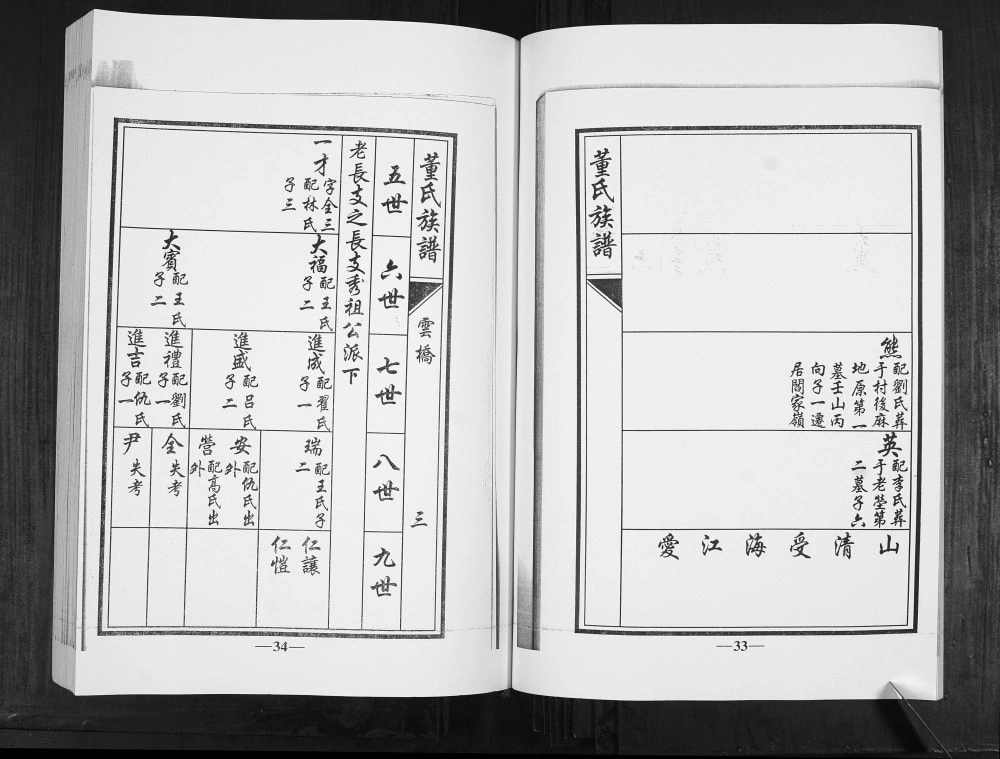 熊
配劉氏葬
于村後麻
地原第一
墓壬山丙
向子一遷
居閻家嶺
英
配李氏葬
于老塋第
二墓子六
山
清
受
海
江
愛
董氏族譜
—33—
董氏族譜
雲橋
三
五世
六世
七世
八世
九世
老長支之長支秀祖公派下
一才
字全三
配林氏
子三
大福
配王氏
子二
大賓
配王氏
子二
進成
配翟氏
子一
進盛
配呂氏
子二
進禮
配劉氏
子一
進吉
配仇氏
子一
瑞
配王氏子
二
安
配仇氏出
外
營
配高氏出
外
全
失考
尹
失考
仁讓
仁愷
—34—